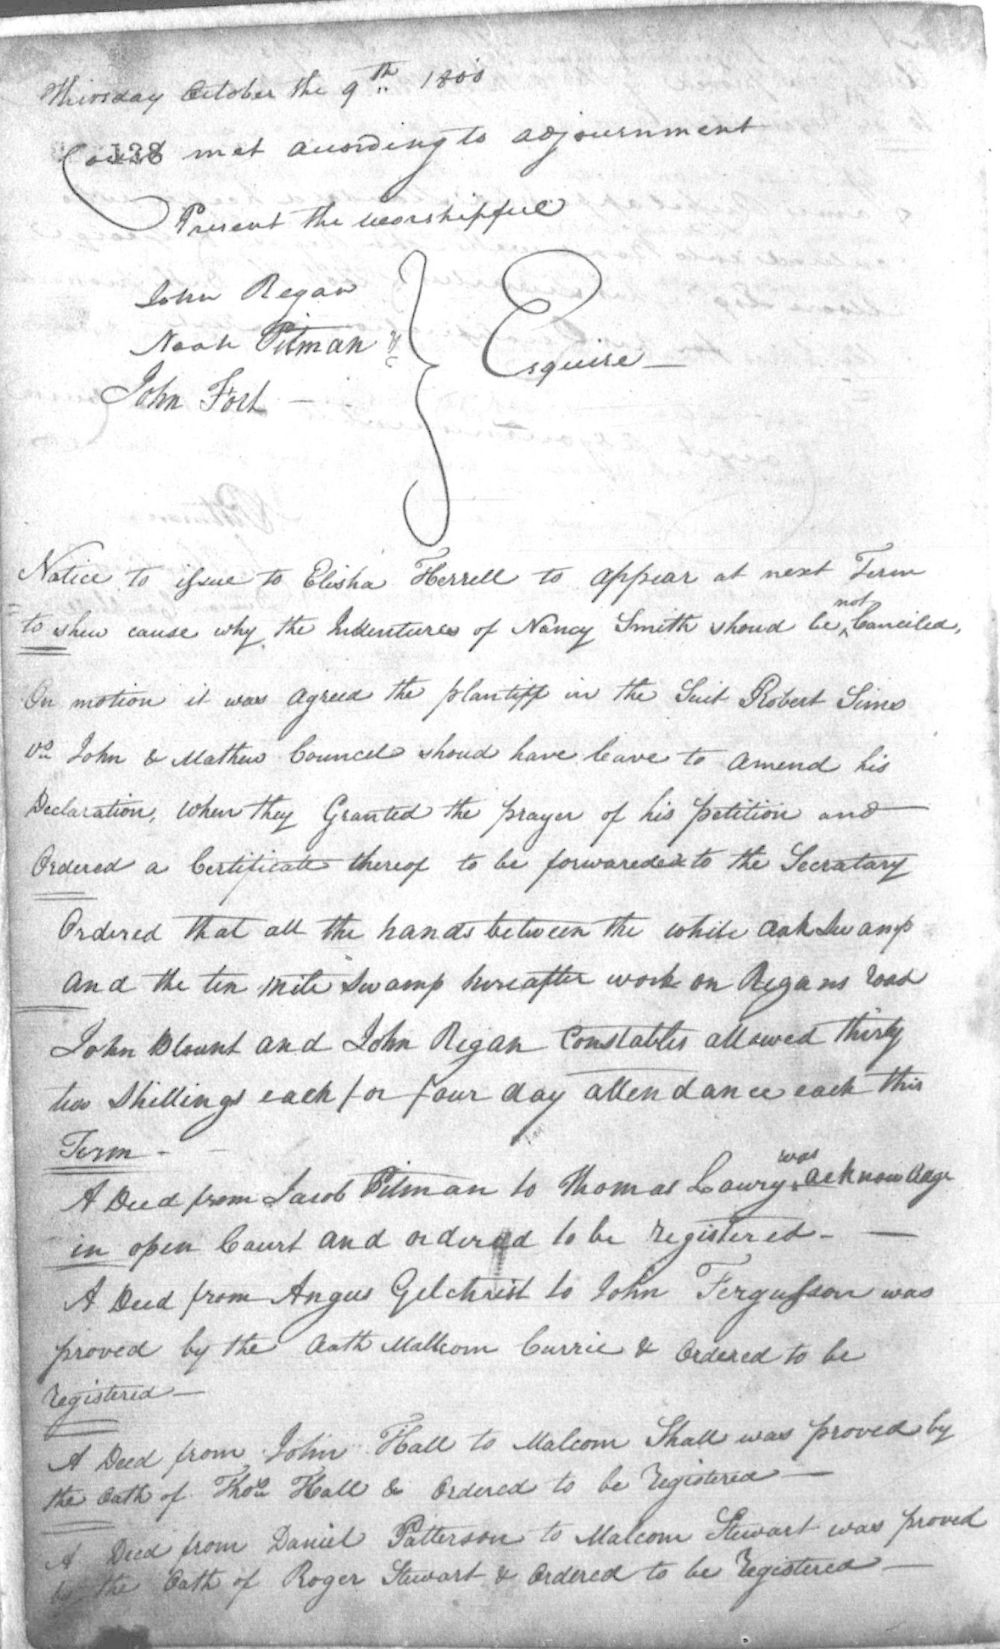 Thursday October the 9th 1800
Court 138 met according to adjournment
Present the worshipfull
John Regan
Noah Pitman &
John Fort —
Esquire —
Notice to issue to Elisha Herrell to appear at next Term
to shew cause why the Indentures of Nancy Smith shoud be not Canciled,
On motion it was agreed the plantiff in the Suit Robert Sims
Vs John & Mathew Councel shoud have leave to amend his
Declaration, When they Granted the prayer of his petition and
Ordered a Certificate thereof to be forwareded to the Secratary
Ordered that all the hands between the white oak Swamp
and the ten mile Swamp hereafter work on Regans road
John Blount and John Regan Constables allowed thirty
two Shillings each for four day attendance each this
Term -
A Deed from Jacob Pitman to Thomas Lowry was acknowadge
in open Court and ordered to be registered - —
A Deed from Angus Gilchrist to John Fergusson was
proved by the Oath Mallcom Currie & Ordered to be
registered —
A Deed from John Hall to Malcom Shall was proved by
the Oath of Thos Hall & Ordered to be registered —
A Deed from Daniel Patterson to Malcom Stewart was proved
by the Oath of Roger Stewart & Ordered to be registered —